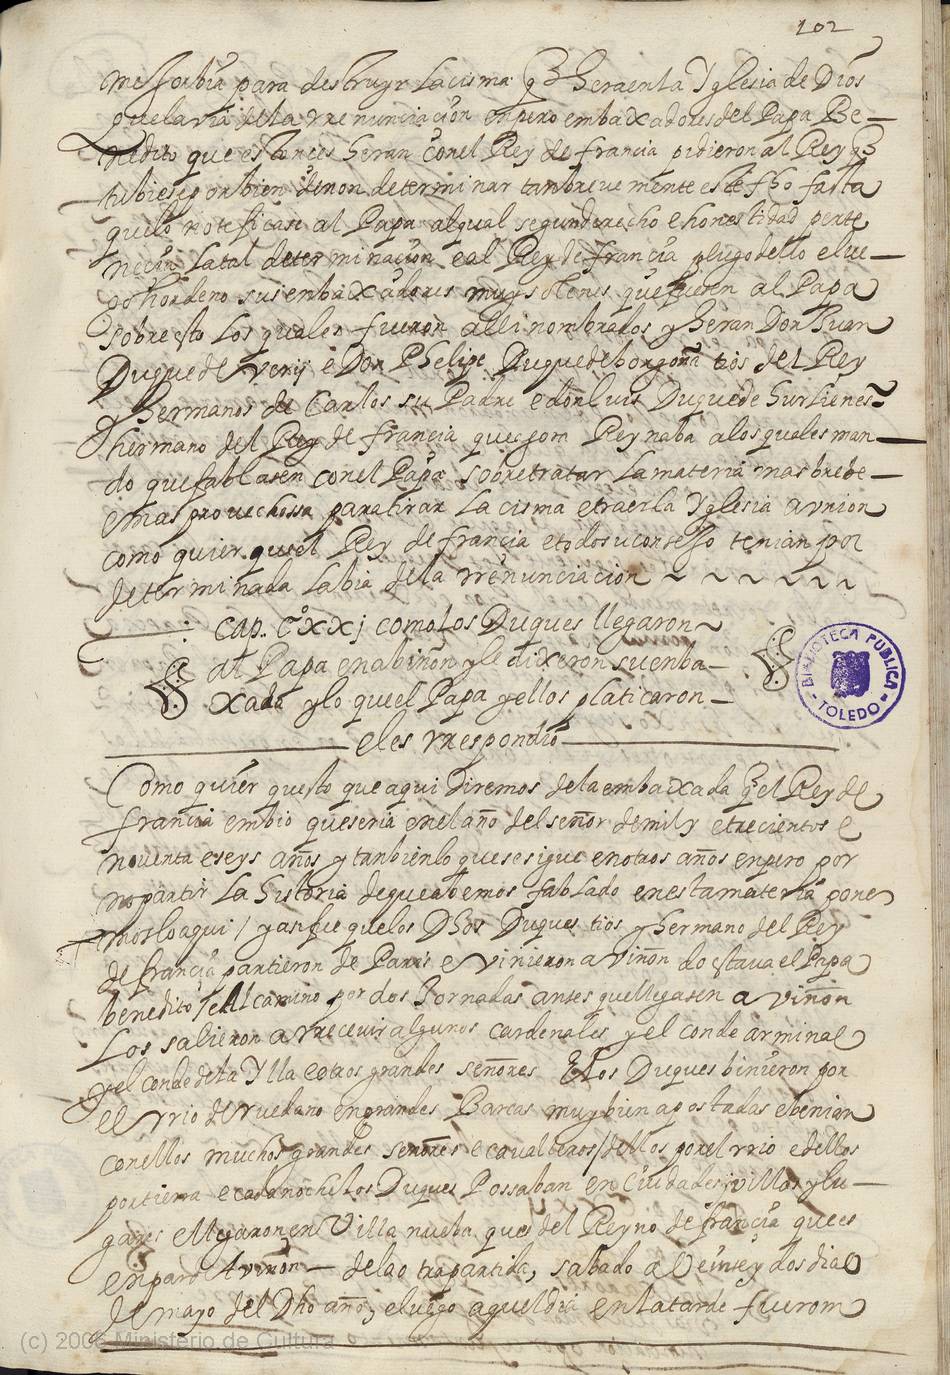 102
mejor bia para destruyr la cisma q̃ hera en la Yglesia de Dios
que la via de la rrenunciacion enpero embaxadores del Papa Be-
nedito que estonces heran con el Rey de francia pidieron al Rey q̃
tubiese por bien de non determinar tan brevemente este fho fasta
que lo noteficase al Papa al qual segun derecho e honestidad perte
necia la tal determinacion e al Rey de francia plugo dello e lue-
go hordeno sus enbaxadores muy solenes que fuesen al Papa
sobre esto los quales fueron alli nombrados y heran Don Juan
Duque de Verri e Don Phelipe Duque de borgoña tios del Rey
y hermanos de Carlos su Padre e don Luis Duque de Hurliens
hermano del Rey de francia que Reynaba a los quales man-
do que fablasen con el Papa sobre tratar la materia mas brebe
e mas provechossa para tirar la cisma e traer la Yglesia a vnion
como quier quel Rey de francia e todo su consejo tenian por
determinada la bia de la rrenunciacion ~ ~ ~ ~ ~ ~
cap. cº xxj como los Duques llegaron ~
al Papa en abiñon y le dixeron su enba-
xada y lo que el Papa y ellos platicaron -
e les rrespondio
Como quier questo que aqui diremos de la embaxada q̃ el Rey de
francia embio que seria en el año del señor de mil y trecientos e
noventa e seys años y tanbien lo que se sigue en otros años enpero por
no partir la historia de que abemos fablado en esta materia pone
moslo aqui / y asi fue que los Dhos Duques tios y hermano del Rey
de francia partieron de Paris e vinieron a viñon do estava el Papa
benedito / e al camino por dos Jornadas antes que llegasen a viñon
los salieron a rrecevir algunos cardenales y el conde arminac
y el conde de la Ylla e otros grandes señores E los Duques binieron por
el rrio de rruedano en grandes Barcas muy bien apostadas e benian
con ellos muchos grandes señores e cavalleros / dellos por el rrio e dellos
por tierra e cada noche los Duques Possaban en Ciudades villas y lu-
gares e llegaron en Villa nueba que es del Reyno de francia que es
en par de Aviñon — de la otra partida, sabado a Veinte y dos dias
de mayo del Dho año, e luego aquel dia en la tarde fueron
BIBLIOTECA PUBLICA
TOLEDO
(c) 2006 Ministerio de Cultura